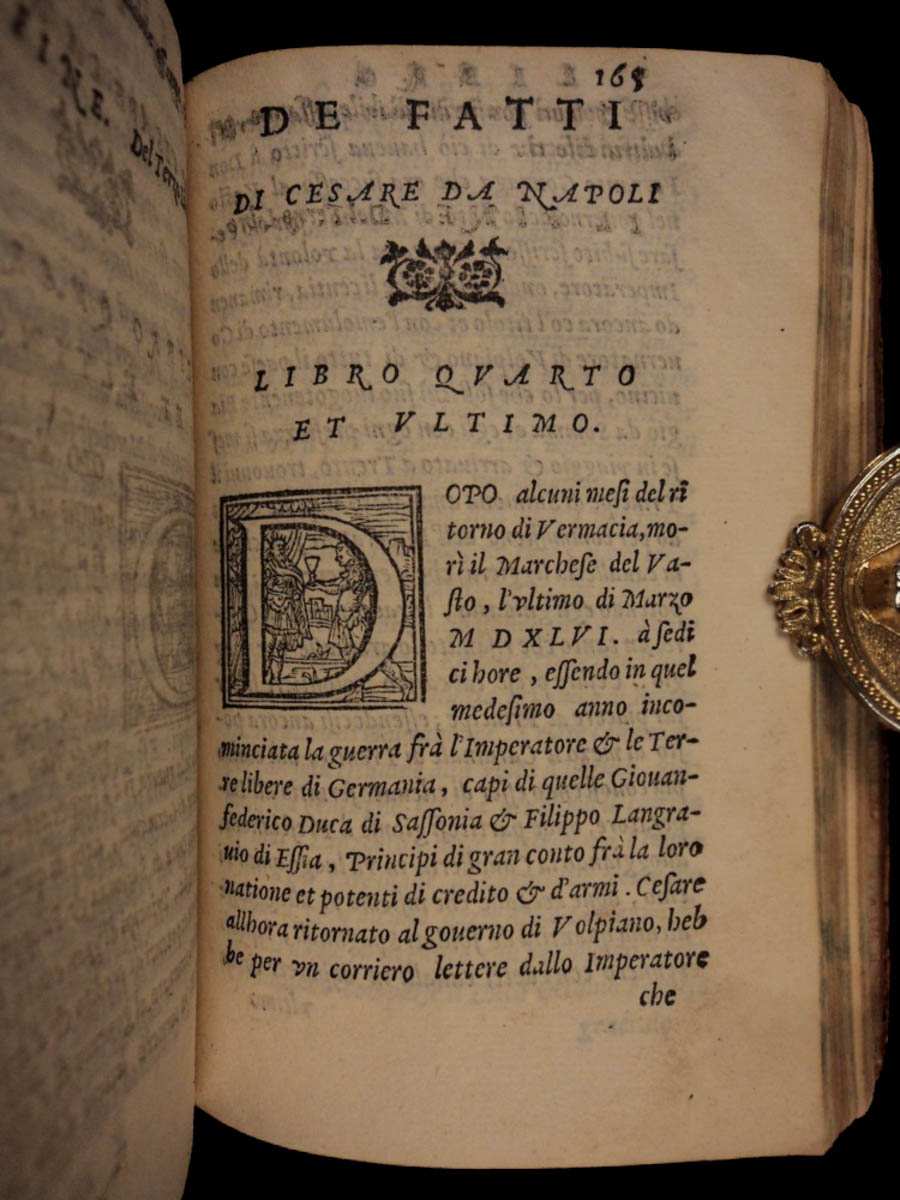 165
DE FATTI
DI CESARE DA NAPOLI
LIBRO QVARTO
ET VLTIMO.
DOPO alcuni mesi del ri
torno di Vermacia, mo-
rì il Marchese del Va-
sto, l'vltimo di Marzo
M DXLVI. à sedi
ci hore, essendo in quel
medesimo anno inco-
minciata la guerra frà l'Imperatore & le Ter-
re libere di Germania, capi di quelle Giouan-
federico Duca di Sassonia & Filippo Langra-
uio di Essia, Principi di gran conto frà la loro
natione et potenti di credito & d'armi. Cesare
allhora ritornato al gouerno di Volpiano, heb
be per vn corriero lettere dallo Imperatore
che